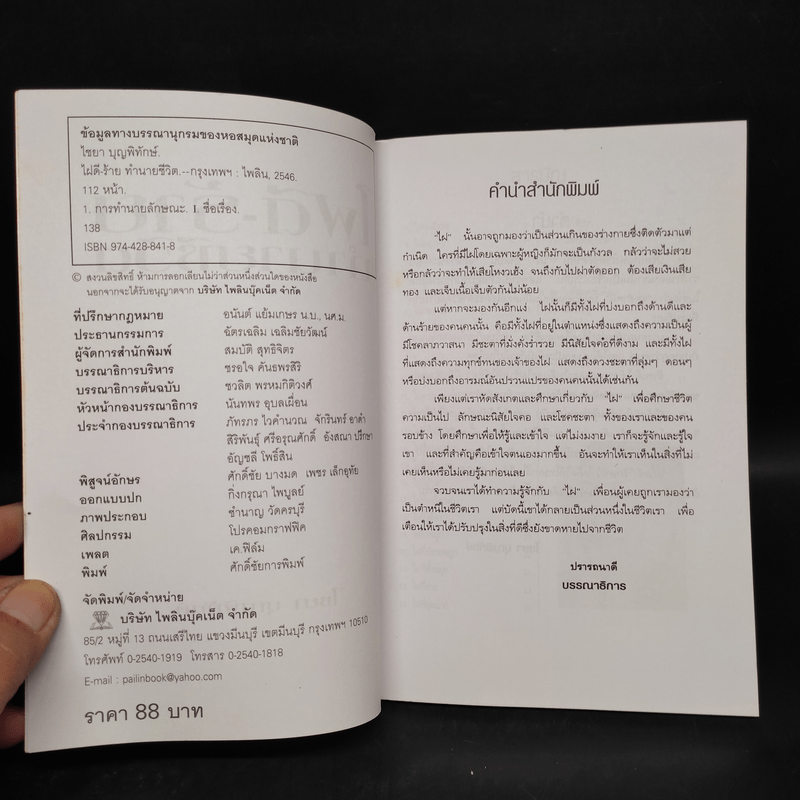 ข้อมูลทางบรรณานุกรมของหอสมุดแห่งชาติ
ไชยา บุญพิทักษ์.
ไฝดี-ร้าย ทำนายชีวิต.--กรุงเทพฯ : ไพลิน, 2546.
112 หน้า.
1. การทำนายลักษณะ. I. ชื่อเรื่อง.
138
ISBN 974-428-841-8
© สงวนลิขสิทธิ์ ห้ามการลอกเลียนไม่ว่าส่วนหนึ่งส่วนใดของหนังสือ
นอกจากจะได้รับอนุญาตจาก บริษัท ไพลินบุ๊คเน็ต จำกัด
ที่ปรึกษากฎหมาย อนันต์ แย้มเกษร น.บ., นศ.ม.
ประธานกรรมการ ฉัตรเฉลิม เฉลิมชัยวัฒน์
ผู้จัดการสำนักพิมพ์ สมบัติ สุทธิจิตร
บรรณาธิการบริหาร ชรอใจ คันธพรสิริ
บรรณาธิการต้นฉบับ ชวลิต พรหมกิติวงศ์
หัวหน้ากองบรรณาธิการ นันทพร อุบลเผื่อน
ประจำกองบรรณาธิการ ภัทรภร ไวคำนวณ จักรินทร์ อาดำ
สิริพันธุ์ ศรีอรุณศักดิ์ อังสณา ปรึกษา
อัญชลี โพธิ์สิน
พิสูจน์อักษร ศักดิ์ชัย บางมด เพชร เล็กอุทัย
ออกแบบปก กิ่งกรุณา ไพบูลย์
ภาพประกอบ ชำนาญ วัดครบุรี
ศิลปกรรม โปรคอมกราฟฟิค
เพลต เค.ฟิล์ม
พิมพ์ ศักดิ์ชัยการพิมพ์
จัดพิมพ์/จัดจำหน่าย
บริษัท ไพลินบุ๊คเน็ต จำกัด
85/2 หมู่ที่ 13 ถนนเสรีไทย แขวงมีนบุรี เขตมีนบุรี กรุงเทพฯ 10510
โทรศัพท์ 0-2540-1919 โทรสาร 0-2540-1818
E-mail : pailinbook@yahoo.com
ราคา 88 บาท
คำนำสำนักพิมพ์
"ไฝ" นั้นอาจถูกมองว่าเป็นส่วนเกินของร่างกายซึ่งติดตัวมาแต่
กำเนิด ใครที่มีไฝโดยเฉพาะผู้หญิงก็มักจะเป็นกังวล กลัวว่าจะไม่สวย
หรือกลัวว่าจะทำให้เสียโหงวเฮ้ง จนถึงกับไปผ่าตัดออก ต้องเสียเงินเสีย
ทอง และเจ็บเนื้อเจ็บตัวกันไม่น้อย
แต่หากจะมองกันอีกแง่ ไฝนั้นก็มีทั้งไฝที่บ่งบอกถึงด้านดีและ
ด้านร้ายของคนคนนั้น คือมีทั้งไฝที่อยู่ในตำแหน่งซึ่งแสดงถึงความเป็นผู้
มีโชคลาภวาสนา มีชะตาที่มั่งคั่งร่ำรวย มีนิสัยใจคอที่ดีงาม และมีทั้งไฝ
ที่แสดงถึงความทุกข์ทนของเจ้าของไฝ แสดงถึงดวงชะตาที่ลุ่มๆ ดอนๆ
หรือบ่งบอกถึงอารมณ์อันปรวนแปรของคนคนนั้นได้เช่นกัน
เพียงแต่เราหัดสังเกตและศึกษาเกี่ยวกับ "ไฝ" เพื่อศึกษาชีวิต
ความเป็นไป ลักษณะนิสัยใจคอ และโชคชะตา ทั้งของเราและของคน
รอบข้าง โดยศึกษาเพื่อให้รู้และเข้าใจ แต่ไม่งมงาย เราก็จะรู้จักและรู้ใจ
เขา และที่สำคัญคือเข้าใจตนเองมากขึ้น อันจะทำให้เราเห็นในสิ่งที่ไม่
เคยเห็นหรือไม่เคยรู้มาก่อนเลย
จวบจนเราได้ทำความรู้จักกับ "ไฝ" เพื่อนผู้เคยถูกเรามองว่า
เป็นตำหนิในชีวิตเรา แต่บัดนี้เขาได้กลายเป็นส่วนหนึ่งในชีวิตเรา เพื่อ
เตือนให้เราได้ปรับปรุงในสิ่งที่ดีซึ่งยังขาดหายไปจากชีวิต
ปรารถนาดี
บรรณาธิการ